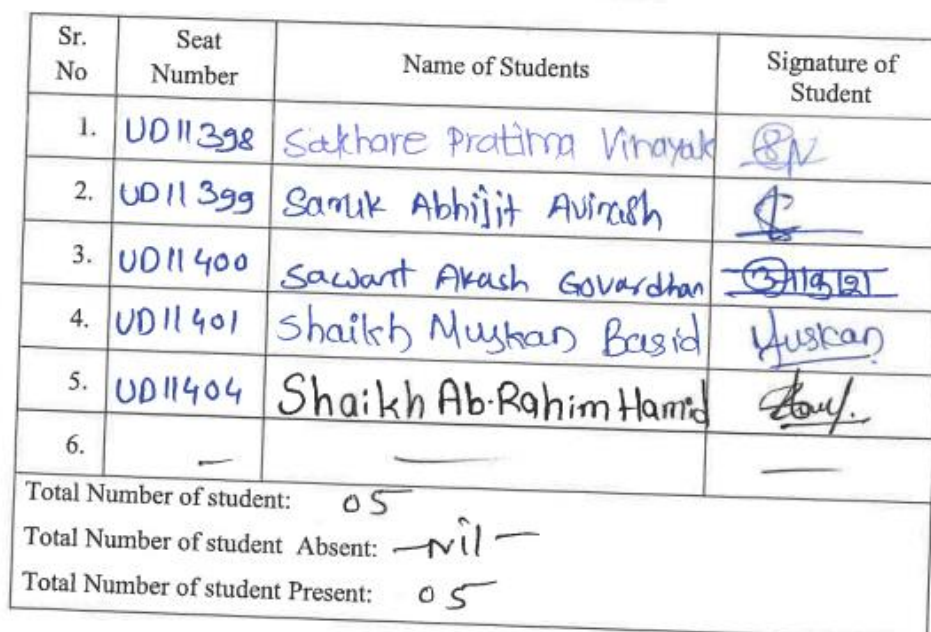 Sr. No Seat Number Name of Students Signature of Student
1. UD11398 Sakhare Pratima Vinayak
2. UD11399 Abhijit Avinash
3. UD11400 Sawant Akash Govardhan
4. UD11401 Shaikh Muskan Basid Muskan
5. UD11404 Shaikh Ab.Rahim Hamid
6. — — —
Total Number of student: 05
Total Number of student Absent: —Nil—
Total Number of student Present: 05